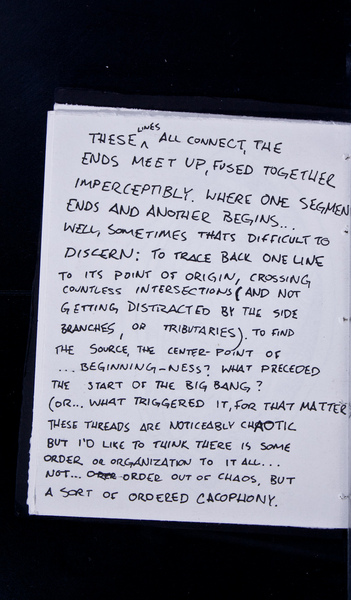 THESE LINES ALL CONNECT, THE
ENDS MEET UP, FUSED TOGETHER
IMPERCEPTIBLY. WHERE ONE SEGMEN
ENDS AND ANOTHER BEGINS...
WELL, SOMETIMES THATS DIFFICULT TO
DISCERN: TO TRACE BACK ONE LINE
TO ITS POINT OF ORIGIN, CROSSING
COUNTLESS INTERSECTIONS (AND NOT
GETTING DISTRACTED BY THE SIDE
BRANCHES, OR TRIBUTARIES). TO FIND
THE SOURCE, THE CENTER-POINT OF
... BEGINNING-NESS? WHAT PRECEDED
THE START OF THE BIG BANG?
(OR... WHAT TRIGGERED IT, FOR THAT MATTER
THESE THREADS ARE NOTICEABLY CHAOTIC
BUT I'D LIKE TO THINK THERE IS SOME
ORDER OR ORGANIZATION TO IT ALL...
NOT... ORDER OUT OF CHAOS, BUT
A SORT OF ORDERED CACOPHONY.